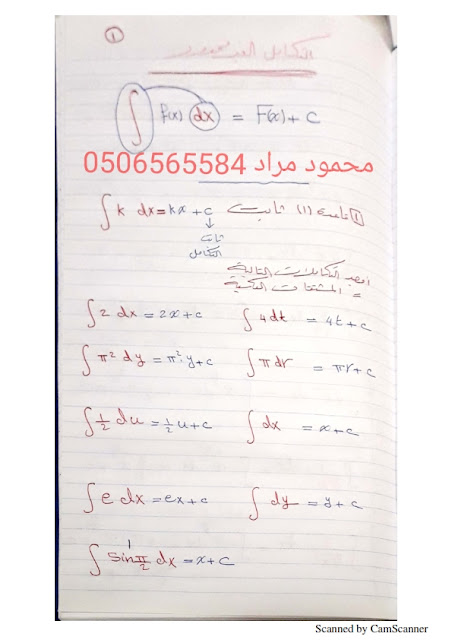 ①
التكامل الغير محدود
∫ f(x) dx = F(x) + c
محمود مراد 0506565584
① قاعدة (1) ثابت ∫ k dx = kx + c
↓
ثابت
التكامل
أوجد التكاملات التالية
= المشتقات العكسية
∫ 2 dx = 2x + c ∫ 4 dt = 4t + c
∫ π² dy = π² y + c ∫ π dr = πr + c
∫ ½ du = ½ u + c ∫ dx = x + c
∫ e dx = ex + c ∫ dy = y + c
1
∫ sin π/2 dx = x + c
Scanned by CamScanner